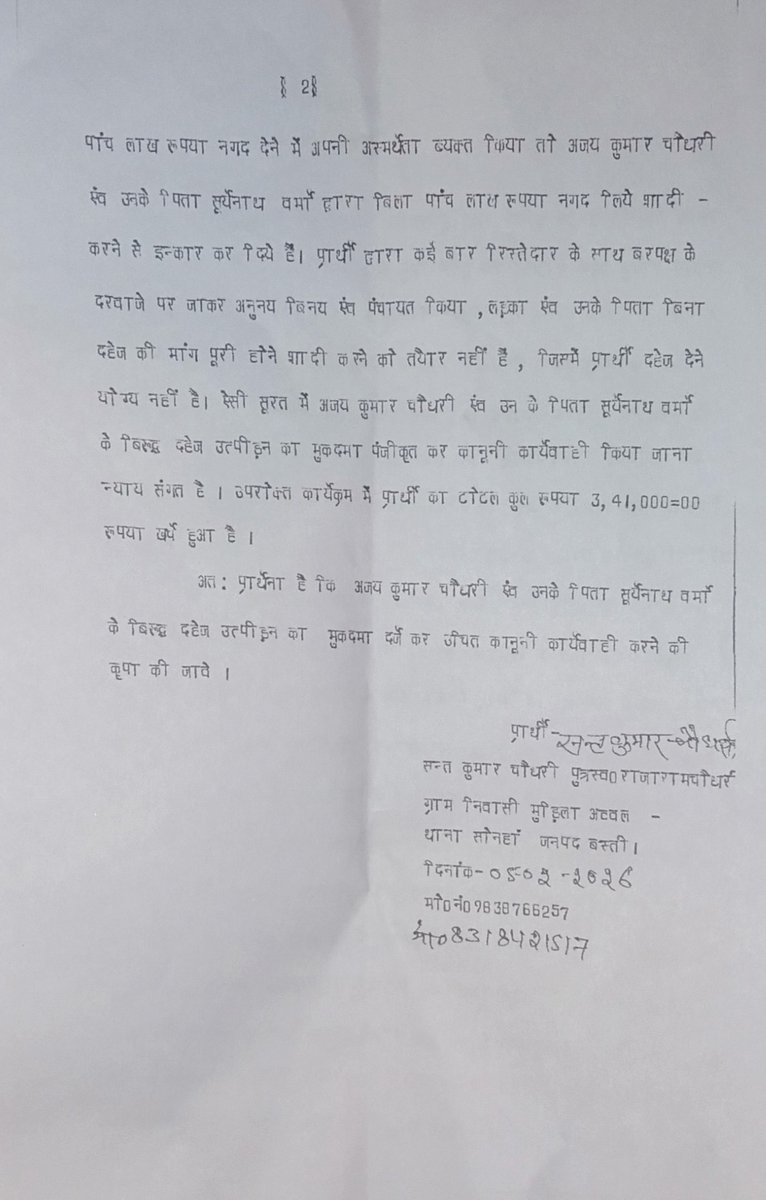 { 2}
पांच लाख रूपया नगद देने में अपनी अस्मर्थता ब्यक्त किया तो अजय कुमार चौधरी
एंव उनके पिता सूर्यनाथ वर्मा द्वारा बिला पांच लाख रूपया नगद लिये शादी -
करने से इन्कार कर दिये है। प्रार्थी द्वारा कई बार रिस्तेदार के साथ बरपक्ष के
दरवाजे पर जाकर अनुनय बिनय एंव पंचायत किया ,लड़का एंव उनके पिता बिना
दहेज की मांग पूरी होने शादी करने को तैयार नहीं है , जिसमें प्रार्थी दहेज देने
योग्य नहीं है। ऐसी सूरत में अजय कुमार चौधरी एंव उन के पिता सूर्यनाथ वर्मा
के बिरूद्ध दहेज उत्पीड़न का मुकदमा पंजीकृत कर कानूनी कार्यवाही किया जाना
न्याय संगत है । उपरोक्त कार्यक्रम में प्रार्थी का टोटल कुल रूपया 3,41,000=00
रूपया खर्च हुआ है ।
अत: प्रार्थना है कि अजय कुमार चौधरी एंव उनके पिता सूर्यनाथ वर्मा
के बिरूद्ध दहेज उत्पीड़न का मुकदमा दर्ज कर उचित कानूनी कार्यवाही करने की
कृपा की जावे ।
प्रार्थी- सन्त कुमार चौधरी
सन्त कुमार चौधरी पुत्रस्व0राजारामचौधरी
ग्राम निवासी मुड़िला अव्वल -
थाना सोनहां जनपद बस्ती।
दिनांक-०5-०२-२०२6
मो0नं09838766257
मो०8318421517